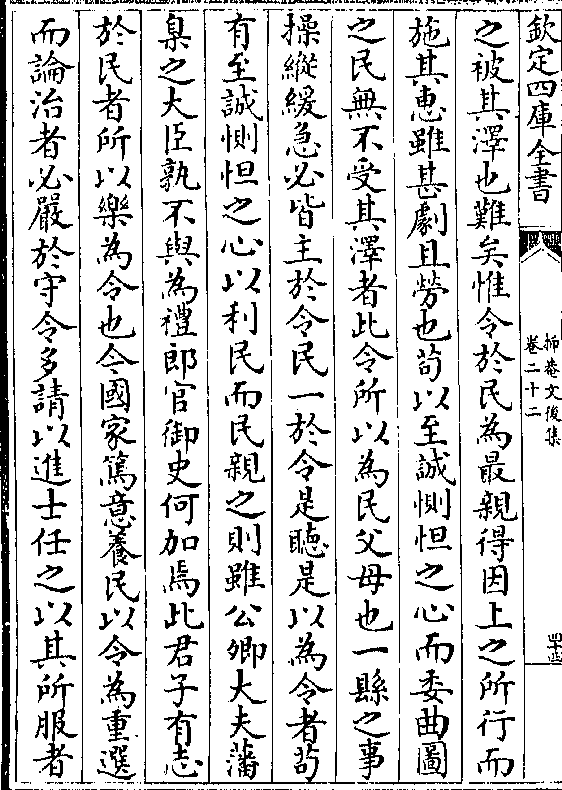 欽定四庫全書
抑菴文後集
卷二十二
之被其澤也難矣惟令於民為最親得因上之所行而
施其惠雖甚劇且勞也苟以至誠惻怛之心而委曲圖
之民無不受其澤者此令所以為民父母也一縣之事
操縱緩急必皆主於令民一於令是聴是以為令者茍
有至誠惻怛之心以利民而民親之則雖公卿大夫藩
臬之大臣孰不與為禮郎官御史何加焉此君子有志
於民者所以樂為令也今國家篤意養民以令為重選
而論治者必嚴於守令多請以進士任之以其所服者